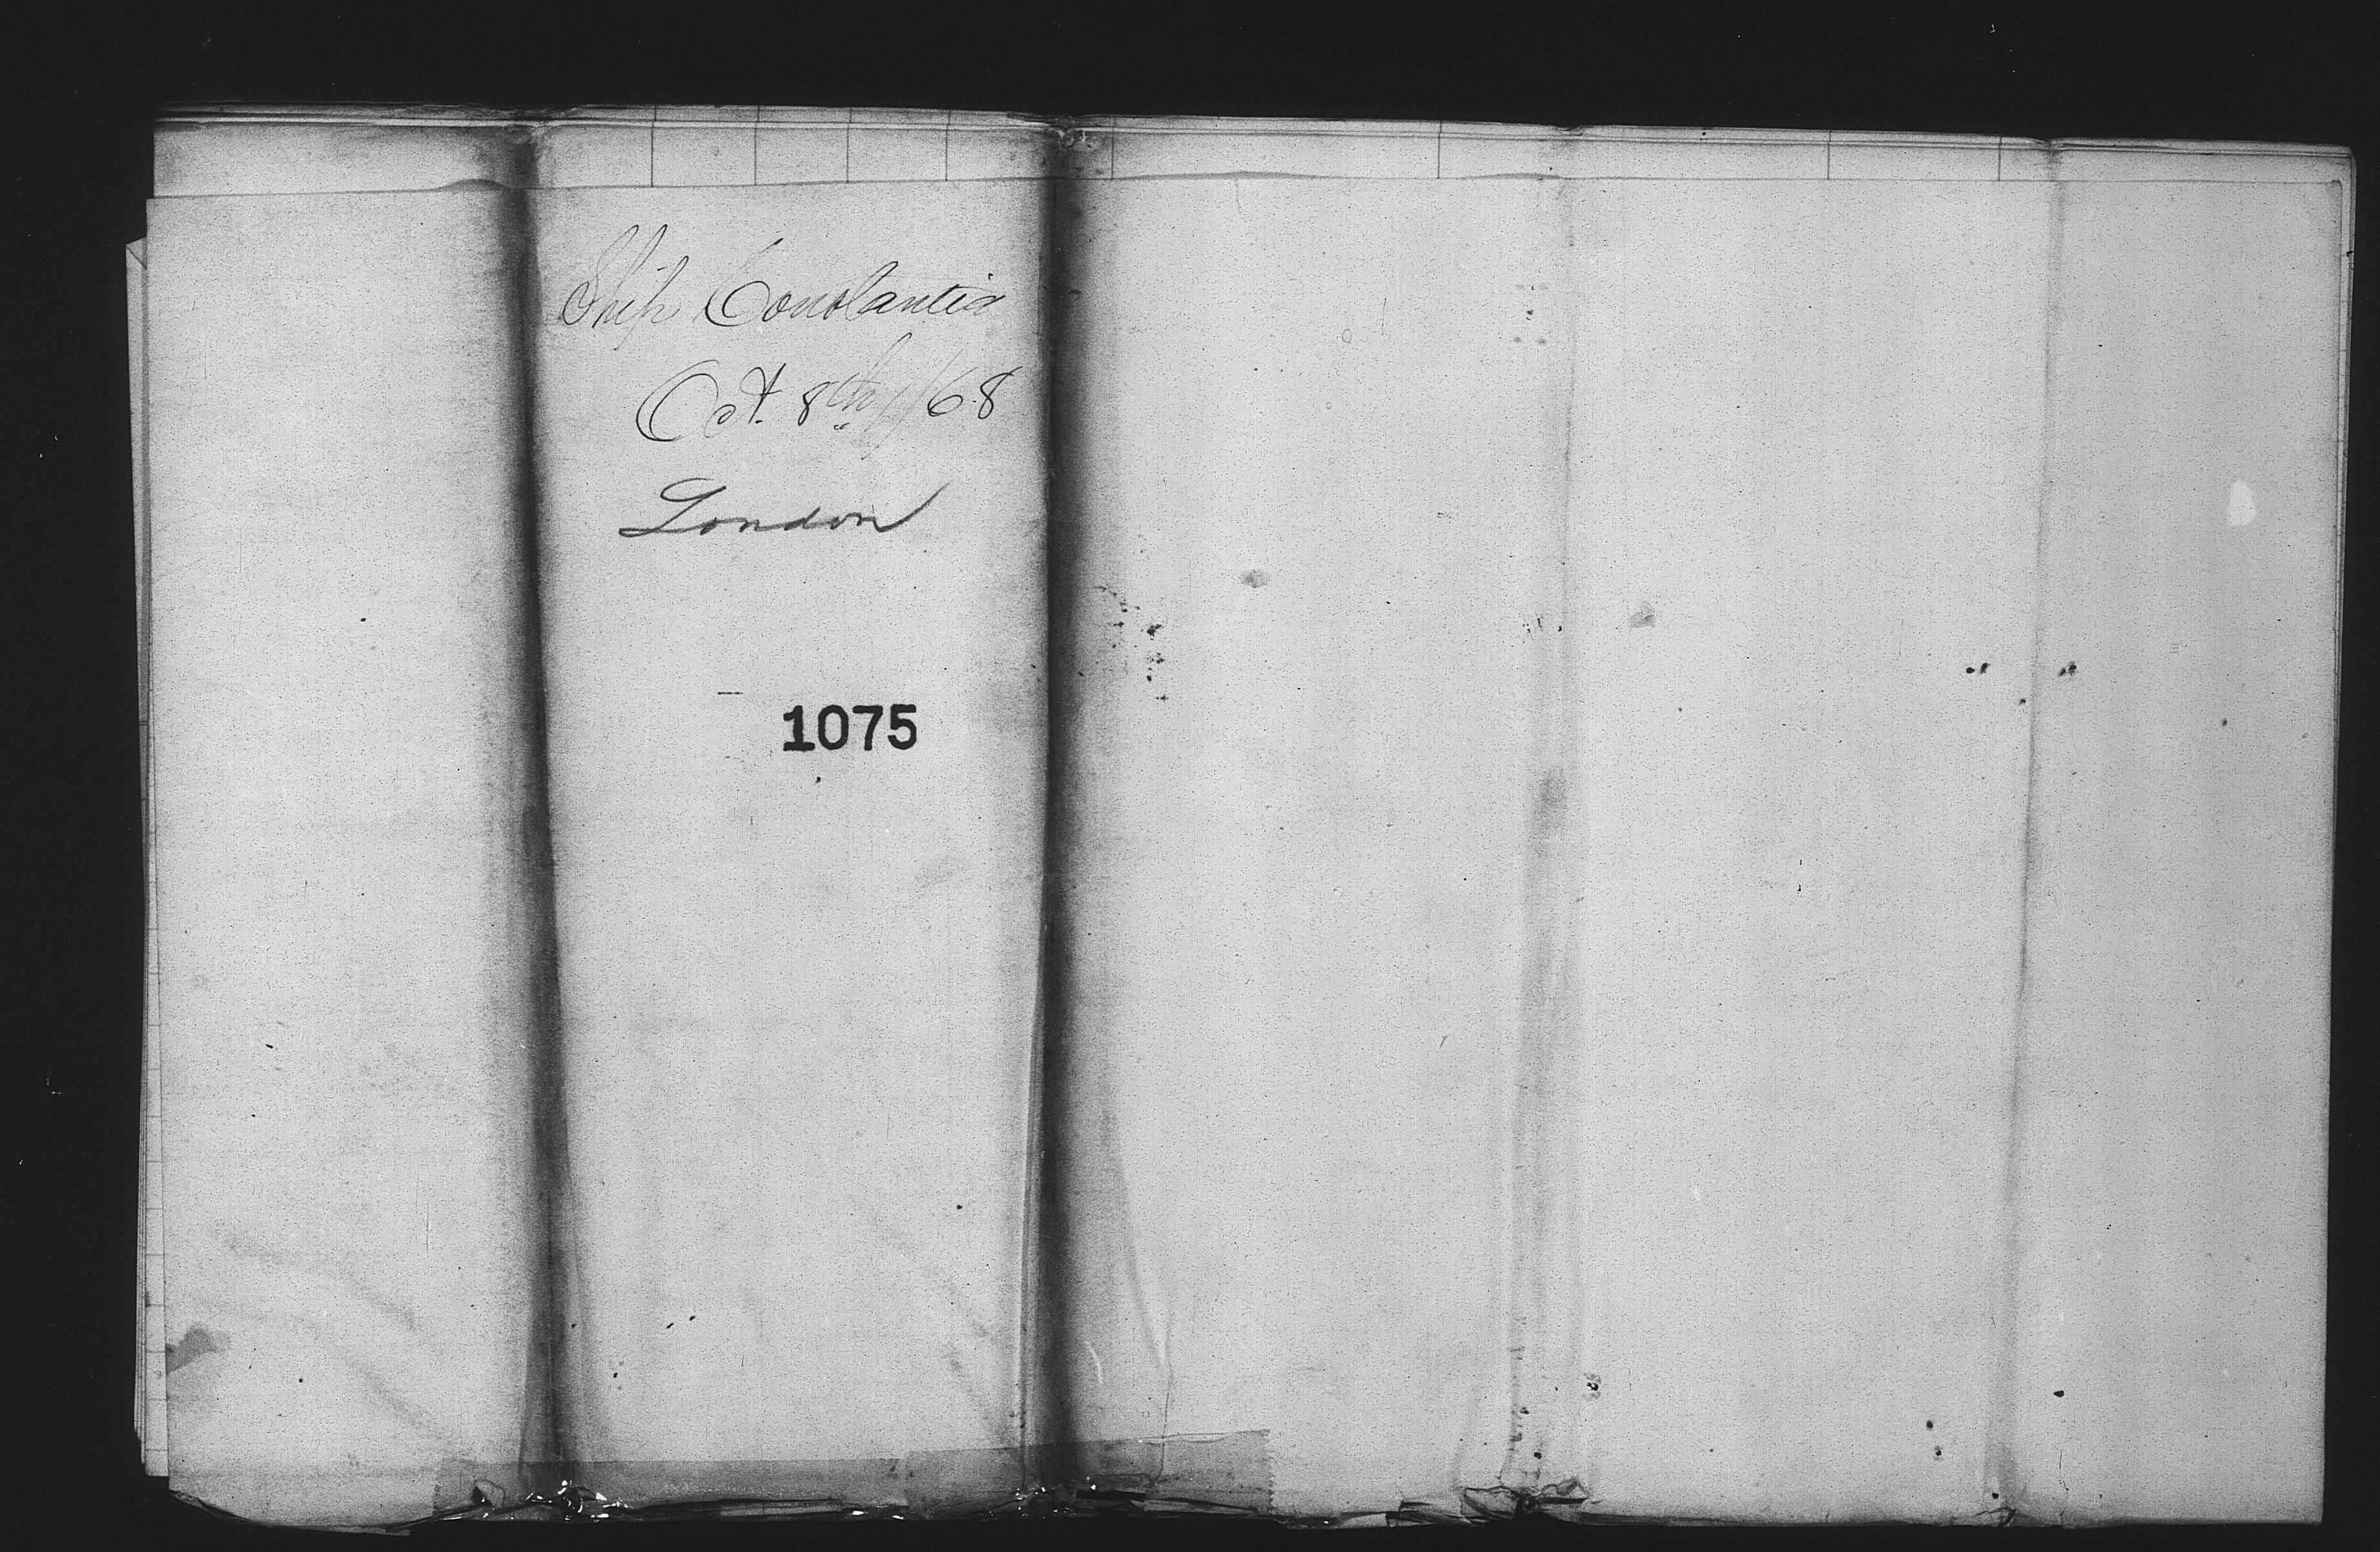 Ship Constantia
Oct. 8th /68
London
1075